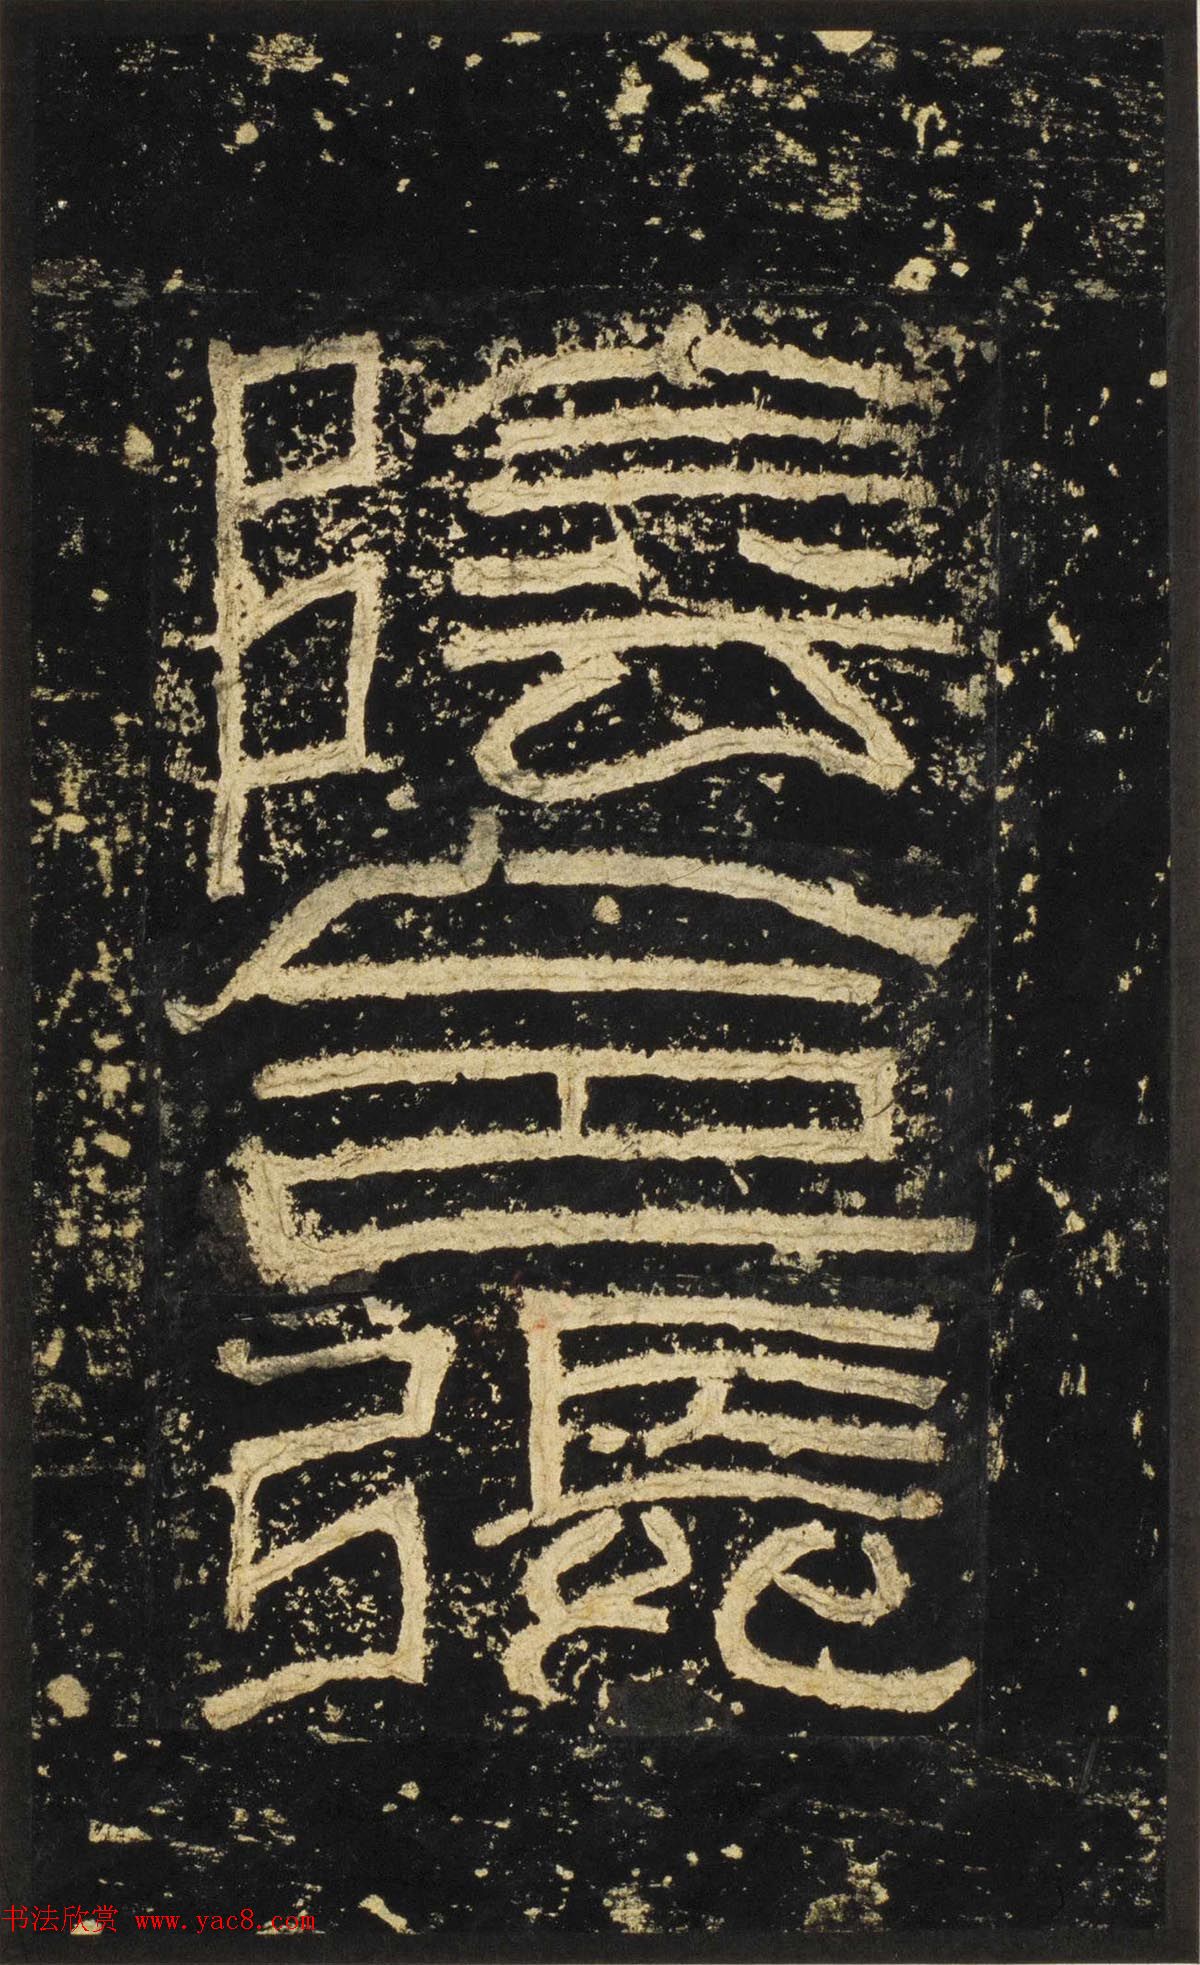 陰令張
书法欣赏 www.yac8.com